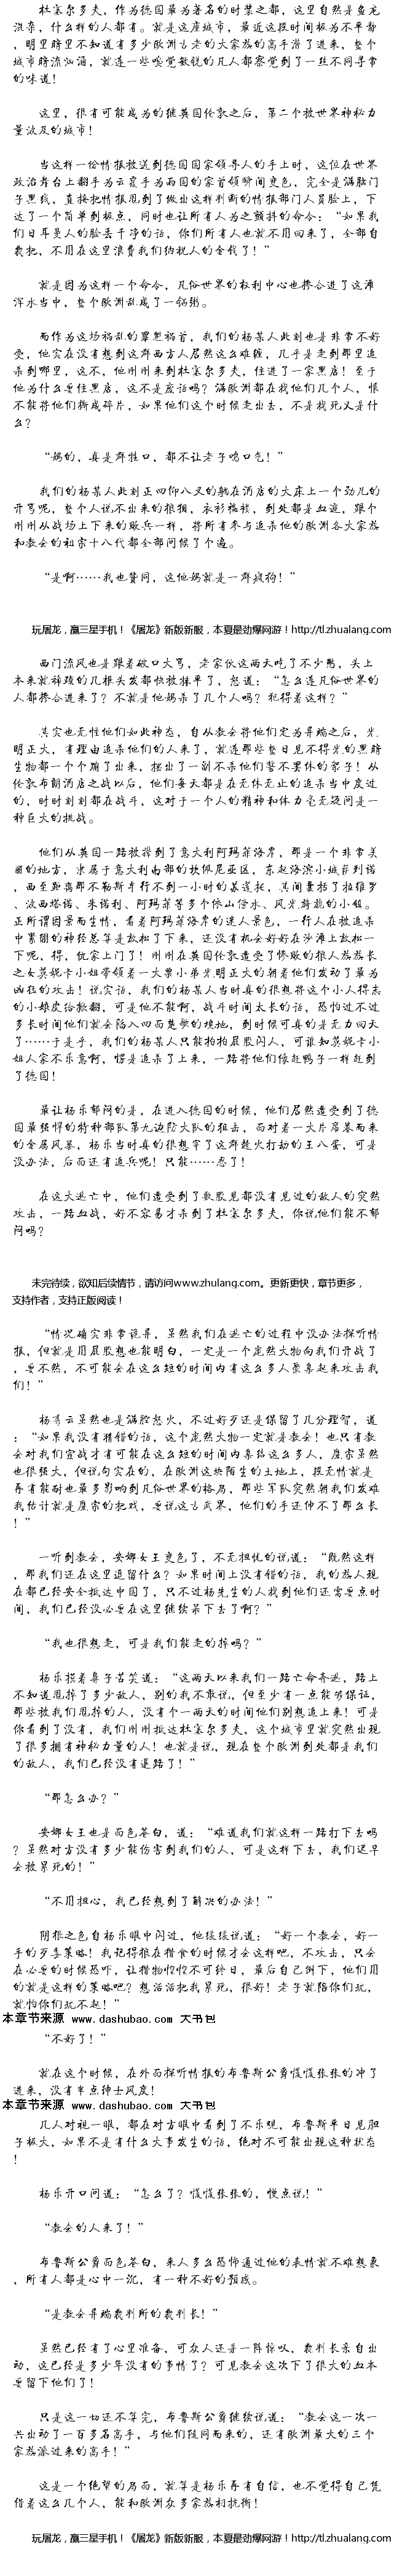 杜塞尔多夫，作为德国最为著名的时装之都，这里自然是鱼龙
混杂，什么样的人都有。就是这座城市，最近这段时间极为不平静
，明里暗里不知道有多少欧洲古老的大家族的高手潜了进来，整个
城市暗流汹涌，就连一些嗅觉敏锐的凡人都察觉到了一丝不同寻常
的味道！
这里，很有可能成为的继英国伦敦之后，第二个被世界神秘力
量波及的城市！
当这样一份情报被送到德国国家领导人的手上时，这位在世界
政治舞台上翻手为云覆手为雨国的家首领瞬间变色，完全是满脑门
子黑线，直接把情报甩到了做出这样判断的情报部门人员脸上，下
达了一个简单到极点，同时也让所有人为之颤抖的命令：“如果我
们日耳曼人的脸丢干净的话，你们所有人也就不用回来了，全部自
裁把，不用在这里浪费我们纳税人的金钱了！”
就是因为这样一个命令，凡俗世界的权利中心也掺合进了这滩
浑水当中，整个欧洲乱成了一锅粥。
而作为这场祸乱的罪魁祸首，我们的杨某人此刻也是非常不好
受，他实在没有想到这群西方人居然这么难缠，几乎是走到那里追
杀到哪里，这不，他刚刚来到杜塞尔多夫，住进了一家黑店！至于
他为什么要住黑店，这不是废话吗？满欧洲都在找他们几个人，恨
不能将他们撕成碎片，如果他们这个时候走出去，不是找死又是什
么？
“妈的，真是群牲口，都不让老子喘口气！”
我们的杨某人此刻正四仰八叉的躺在酒店的大床上一个劲儿的
开骂呢，整个人说不出来的狼狈，衣衫褴褛，到处都是血迹，跟个
刚刚从战场上下来的败兵一样，将所有参与追杀他的欧洲各大家族
和教会的祖宗十八代都全部问候了个遍。
“是啊……我也赞同，这他妈就是一群疯狗！”
玩屠龙，赢三星手机！《屠龙》新版新服，本夏最劲爆网游！http://tl.zhualang.com
西门流风也是跟着破口大骂，老家伙这两天吃了不少憋，头上
本来就稀疏的几根头发都快被抹平了，怒道：“怎么连凡俗世界的
人都掺合进来了？不就是他妈杀了几个人吗？犯得着这样？”
其实也无怪他们如此神态，自从教会将他们定为异端之后，光
明正大，有理由追杀他们的人来了，就连那些整日见不得光的黑暗
生物都一个个蹦了出来，摆出了一副不杀他们誓不罢休的架子！从
伦敦布朗酒店之战以后，他们每天都是在无休无止的追杀当中度过
的，时时刻刻都在战斗，这对于一个人的精神和体力毫无疑问是一
种巨大的挑战。
他们从英国一路被撵到了意大利阿玛菲海岸，那是一个非常美
丽的地方，隶属于意大利南部的坎佩尼亚区，东起海滨小城萨列诺
，西至距离那不勒斯车行不到一小时的苏莲托，其间囊括了拉维罗
、波西塔诺、米诺利、阿玛菲等多个依山傍水、风光旖旎的小镇。
正所谓因景而生情，看着阿玛菲海岸的迷人景色，一行人在被追杀
中紧绷的神经总算是放松了下来，还没有机会好好在沙滩上放松一
下呢，得，仇家上门了！刚刚在英国伦敦遭受了惨败的狼人族族长
之女莫妮卡小姐带领着一大票小弟光明正大的朝着他们发动了最为
凶狂的攻击！说实话，我们的杨某人当时真的很想将这个小人得志
的小雌皮给掀翻，可是他不能啊，战斗时间太长的话，恐怕过不过
多长时间他们就会陷入四面楚歌的境地，到时候可真的是无力回天
了……于是乎，我们的杨某人只能拍拍屁股闪人，可谁知莫妮卡小
姐人家不乐意啊，愣是追杀了上来，一路将他们像赶鸭子一样赶到
了德国！
最让杨乐郁闷的是，在进入德国的时候，他们居然遭受到了德
国最强悍的特种部队第九边防大队的狙击，面对着一大片席卷而来
的金属风暴，杨乐当时真的很想宰了这群趁火打劫的王八蛋，可是
没办法，后面还有追兵呢！只能……忍了！
在这大逃亡中，他们遭受到了数股见都没有见过的敌人的突然
攻击，一路血战，好不容易才杀到了杜塞尔多夫，你说他们能不郁
闷吗？
未完待续，欲知后续情节，请访问www.zhulang.com。更新更快，章节更多，
支持作者，支持正版阅读！
“情况确实非常诡异，虽然我们在逃亡的过程中没办法探听情
报，但就是用屁股想也能明白，一定是一个庞然大物向我们开战了
，要不然，不可能会在这么短的时间内有这么多人聚集起来攻击我
们！”
杨青云虽然也是满腔怒火，不过好歹还是保留了几分理智，道
：“如果我没有猜错的话，这个庞然大物一定就是教会！也只有教
会对我们宣战才有可能在这么短的时间内集结这么多人，唐宗虽然
也很强大，但说句实在的，在欧洲这块陌生的土地上，段无情就是
再有能耐也最多影响到凡俗世界的格局，那些军队突然朝我们发难
我估计就是唐宗的把戏，要说这古武界，他们的手还伸不了那么长
！”
一听到教会，安娜女王变色了，不无担忧的说道：“既然这样
，那我们还在这里逗留什么？如果时间上没有错的话，我的族人现
在都已经安全抵达中国了，只不过杨先生的人找到他们还需要点时
间，我们已经没必要在这里继续呆下去了啊？”
“我也很想走，可是我们能走的掉吗？”
杨乐摸着鼻子苦笑道：“这两天以来我们一路亡命奔逃，路上
不知道甩掉了多少敌人，别的我不敢说，但至少有一点能够保证，
那些被我们甩掉的人，没有个一两天的时间他们别想追上来！可是
你看到了没有，我们刚刚抵达杜塞尔多夫，这个城市里就突然出现
了很多拥有神秘力量的人！也就是说，现在整个欧洲到处都是我们
的敌人，我们已经没有退路了！”
“那怎么办？”
安娜女王也是面色苍白，道：“难道我们就这样一路打下去吗
？虽然对方没有多少能伤害到我们的人，可是这样下去，我们迟早
会被累死的！”
“不用担心，我已经想到了解决的办法！”
阴狠之色自杨乐眼中闪过，他缓缓说道：“好一个教会，好一
手的歹毒策略！我记得狼在猎食的时候才会这样吧，不攻击，只会
在必要的时候恐吓，让猎物惶惶不可终日，最后自己倒下，他们用
的就是这样的策略吧？想活活把我累死，很好！老子就陪你们玩，
就怕你们玩不起！”
本章节来源 www.dashubao.com 大书包
“不好了！”
就在这个时候，在外面探听情报的布鲁斯公爵慌慌张张的冲了
进来，没有半点绅士风度！
本章节来源 www.dashubao.com 大书包
几人对视一眼，都在对方眼中看到了不乐观，布鲁斯平日见胆
子极大，如果不是有什么大事发生的话，绝对不可能出现这种状态
！
杨乐开口问道：“怎么了？慌慌张张的，慢点说！”
“教会的人来了！”
布鲁斯公爵面色苍白，来人多么恐怖通过他的表情就不难想象
，所有人都是心中一沉，有一种不好的预感。
“是教会异端裁判所的裁判长！”
虽然已经有了心里准备，可众人还是一阵惊叹，裁判长亲自出
动，这已经是多少年没有的事情了？可见教会这次下了很大的血本
要留下他们了！
只是这一切还不算完，布鲁斯公爵继续说道：“教会这一次一
共出动了一百多名高手，与他们随同而来的，还有欧洲最大的三个
家族派过来的高手！”
这是一个绝望的局面，就算是杨乐再有自信，也不觉得自己凭
借着这么几个人，能和欧洲众多家族相抗衡！
玩屠龙，赢三星手机！《屠龙》新版新服，本夏最劲爆网游！http://tl.zhualang.com